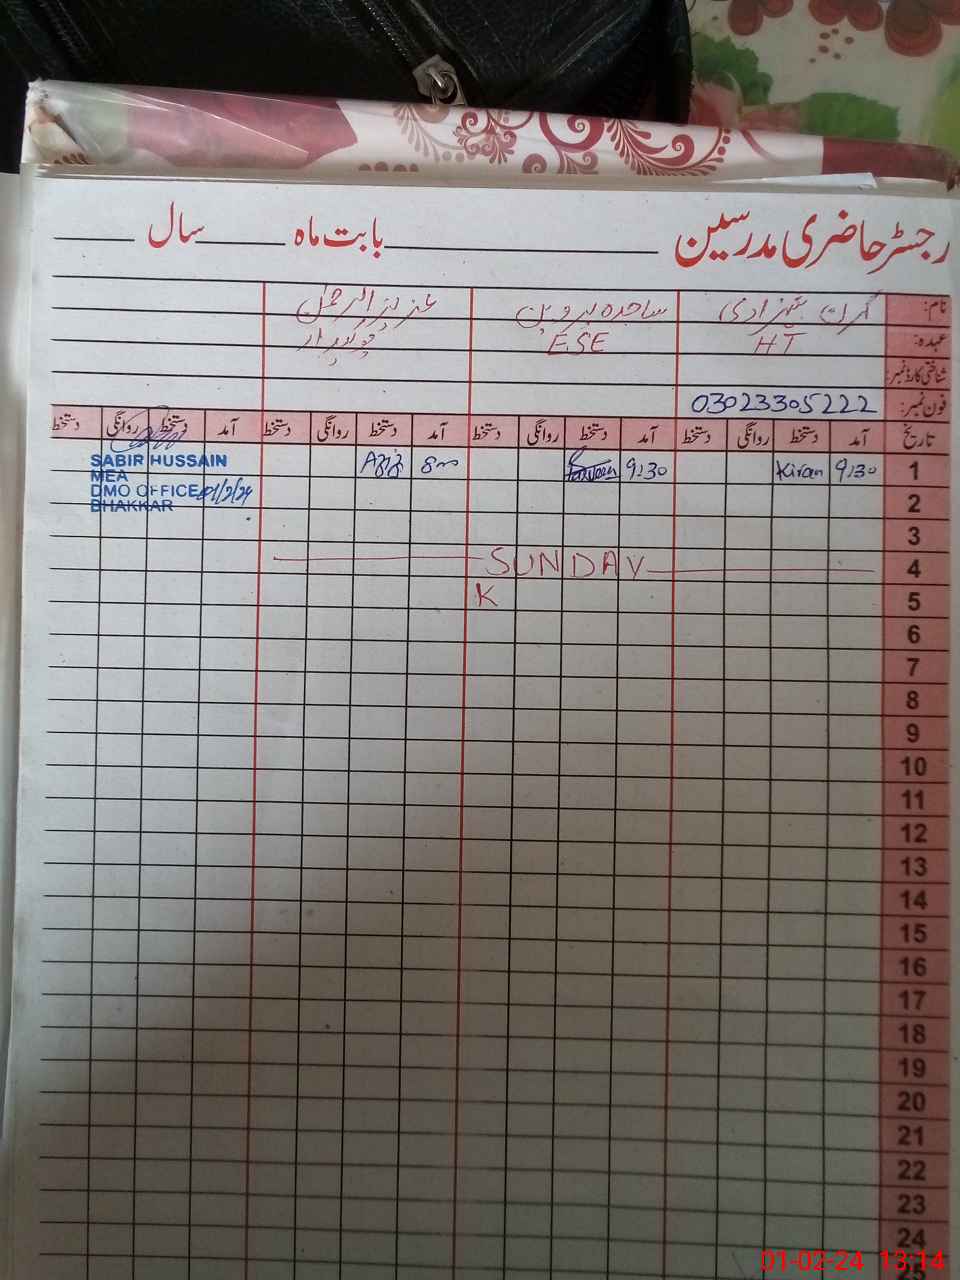 رجسٹر حاضری مدرسین بابت ماہ سال
نام: کرن شہزادی ساجدہ پروین عزیز الرحمن
عہدہ: HT ESE چوکیدار
شناختی کارڈ نمبر:
فون نمبر: 03023305222
تاریخ آمد دستخط روانگی دستخط آمد دستخط روانگی دستخط آمد دستخط روانگی دستخط آمد دستخط روانگی دستخط
1 9:30 Kiran 9:30 Parveen
SABIR HUSSAIN
MEA
DMO OFFICE 01/2/24
BHAKKAR
2
3
4 SUNDAY
5 K
6
7
8
9
10
11
12
13
14
15
16
17
18
19
20
21
22
23
24
25
01-02-24 13:14